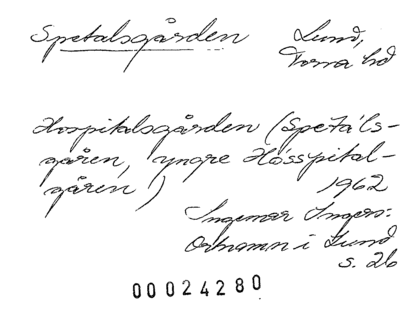 Spetalsgården Lund,
Torna hd
Hospitalsgården (Spetáls-
gåren, yngre Hósspital-
gåren)
1962
Ingemar Ingers:
Ortnamn i Lund
s. 26
00024280